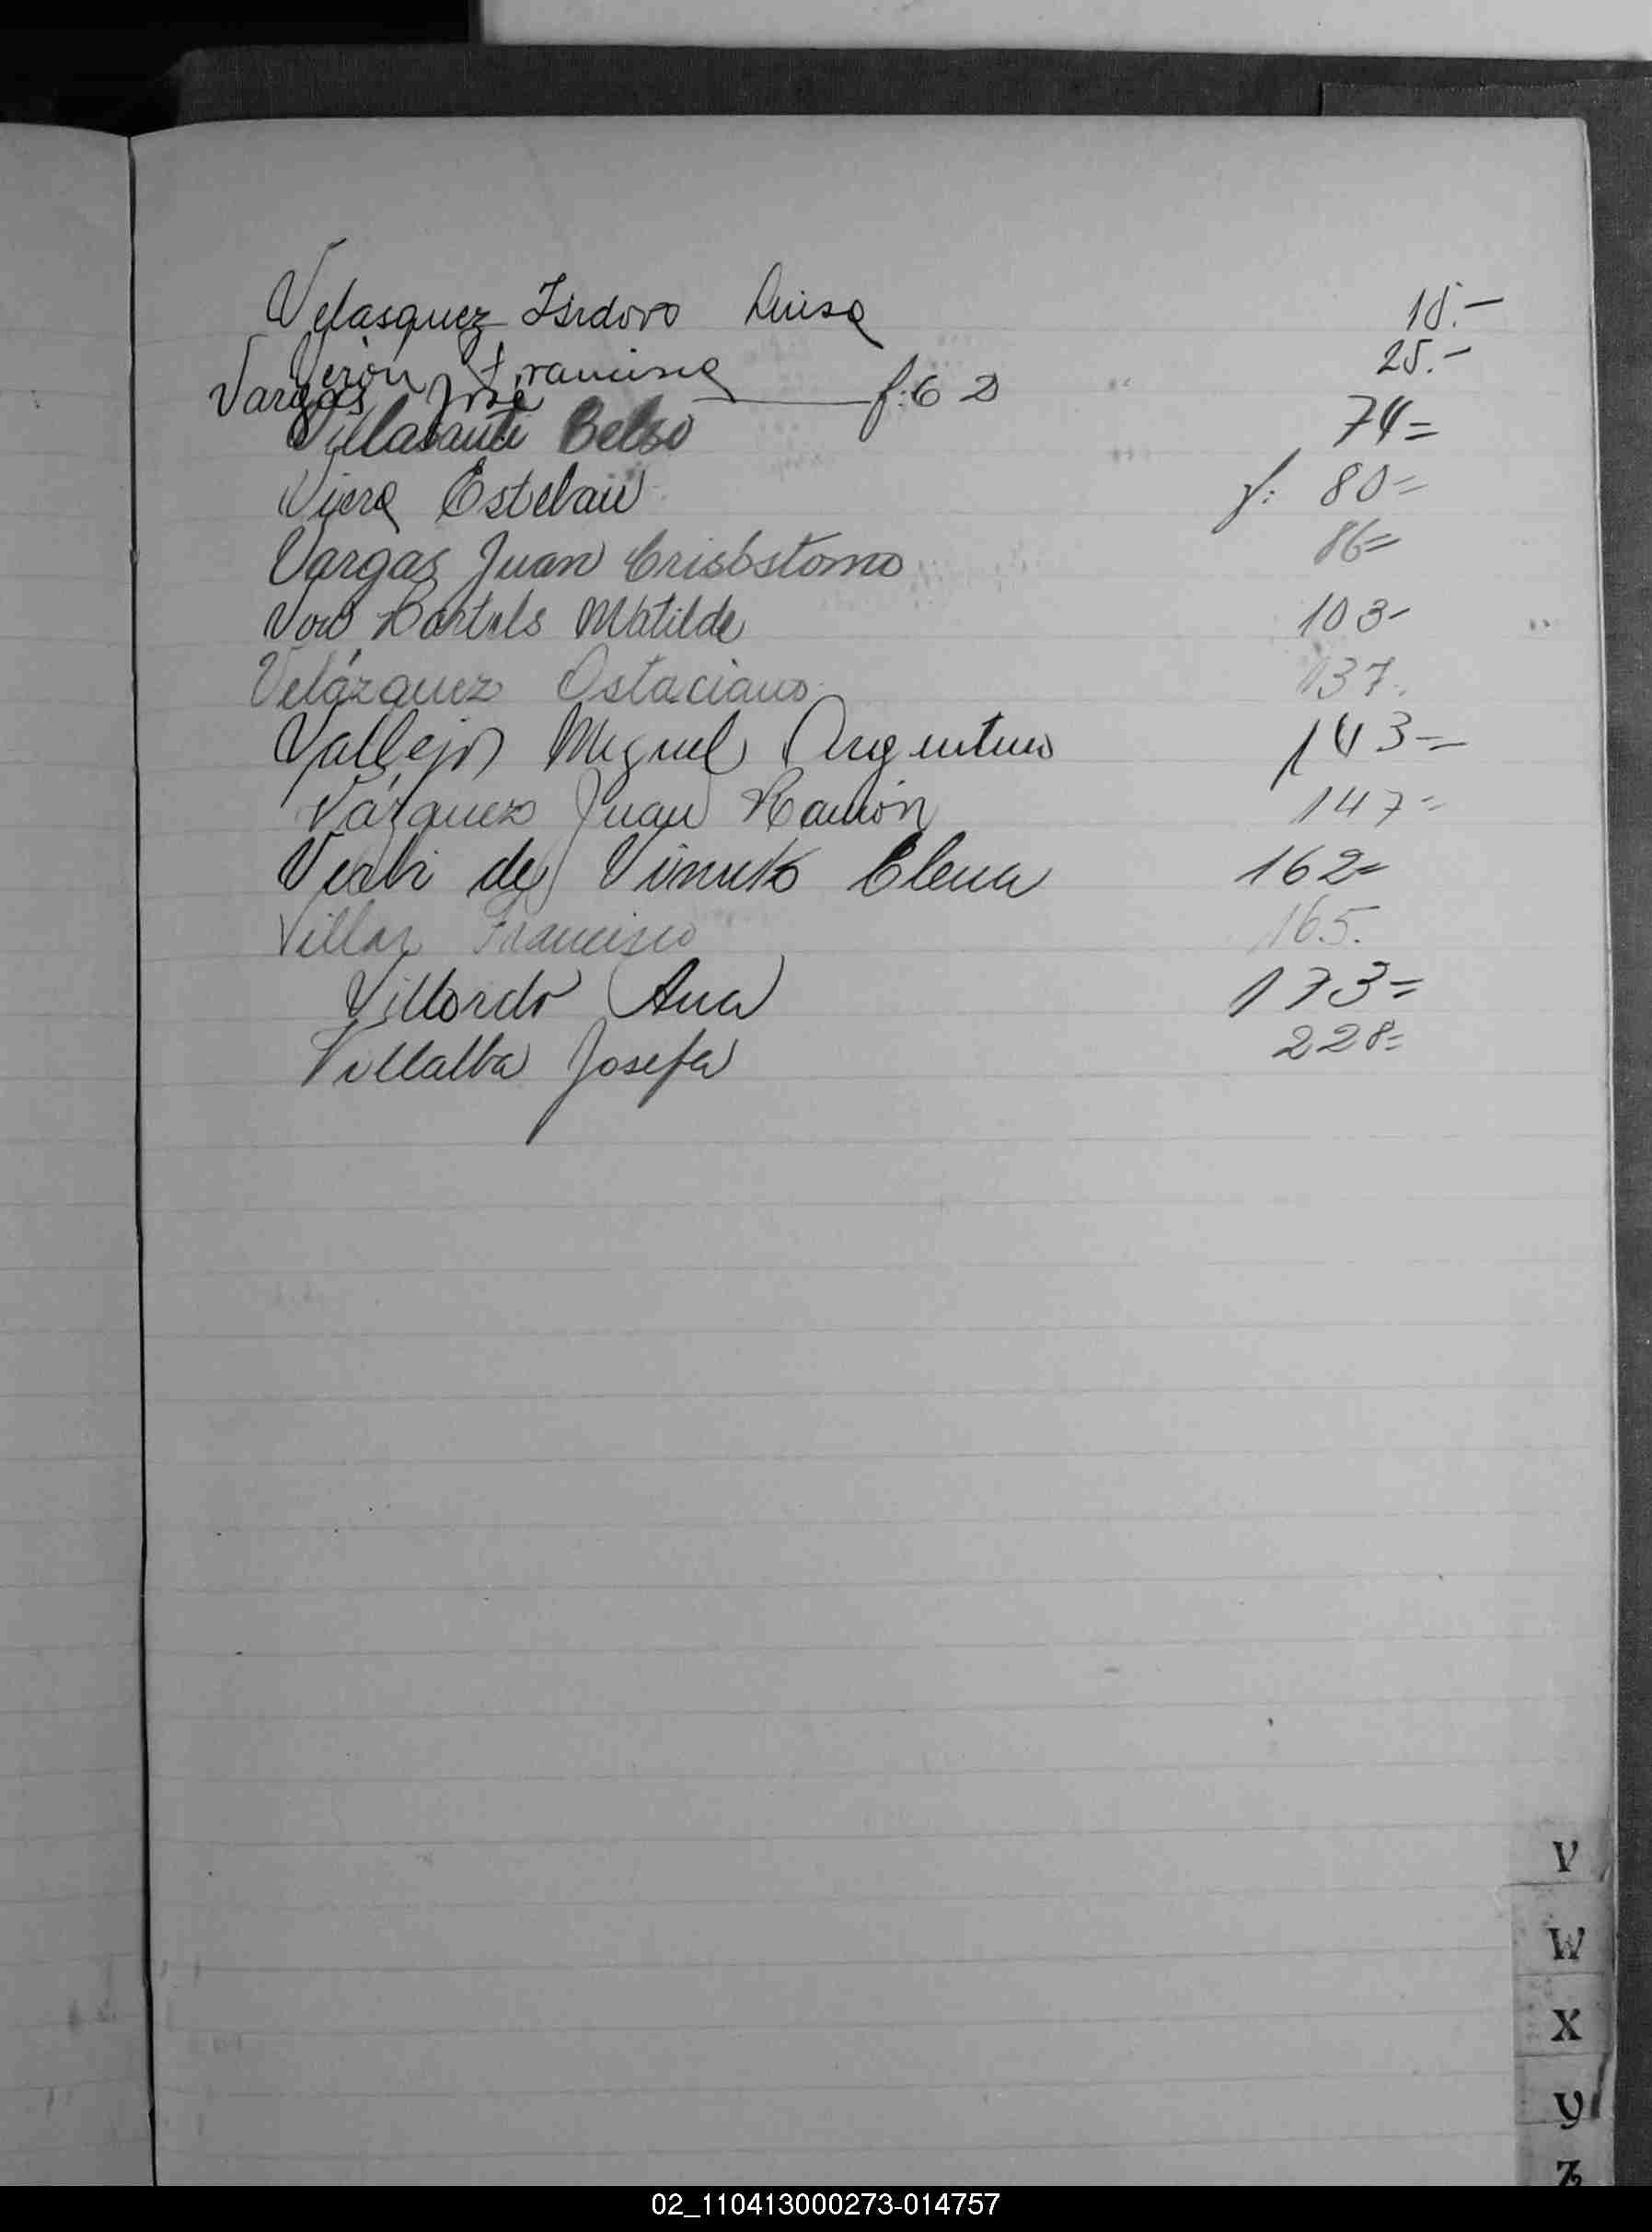 Velasquez Isidoro Luisa 15.-
Verón Francisca 25.-
Vargas José f: 62
Villasanti Belso 74=
Viera Esteban f: 80=
Vargas Juan Crisóstomo 86=
Von Bartels Matilde 103-
Velázquez Ostaciano 137.
Vallejos Miguel Argentino 143=
Vázquez Juan Ramón 147=
de Elena 162=
Villar Francisco 165.
Villordo Ana 173=
Villalba Josefa 228=
V
W
X
Y
Z
02_110413000273-014757